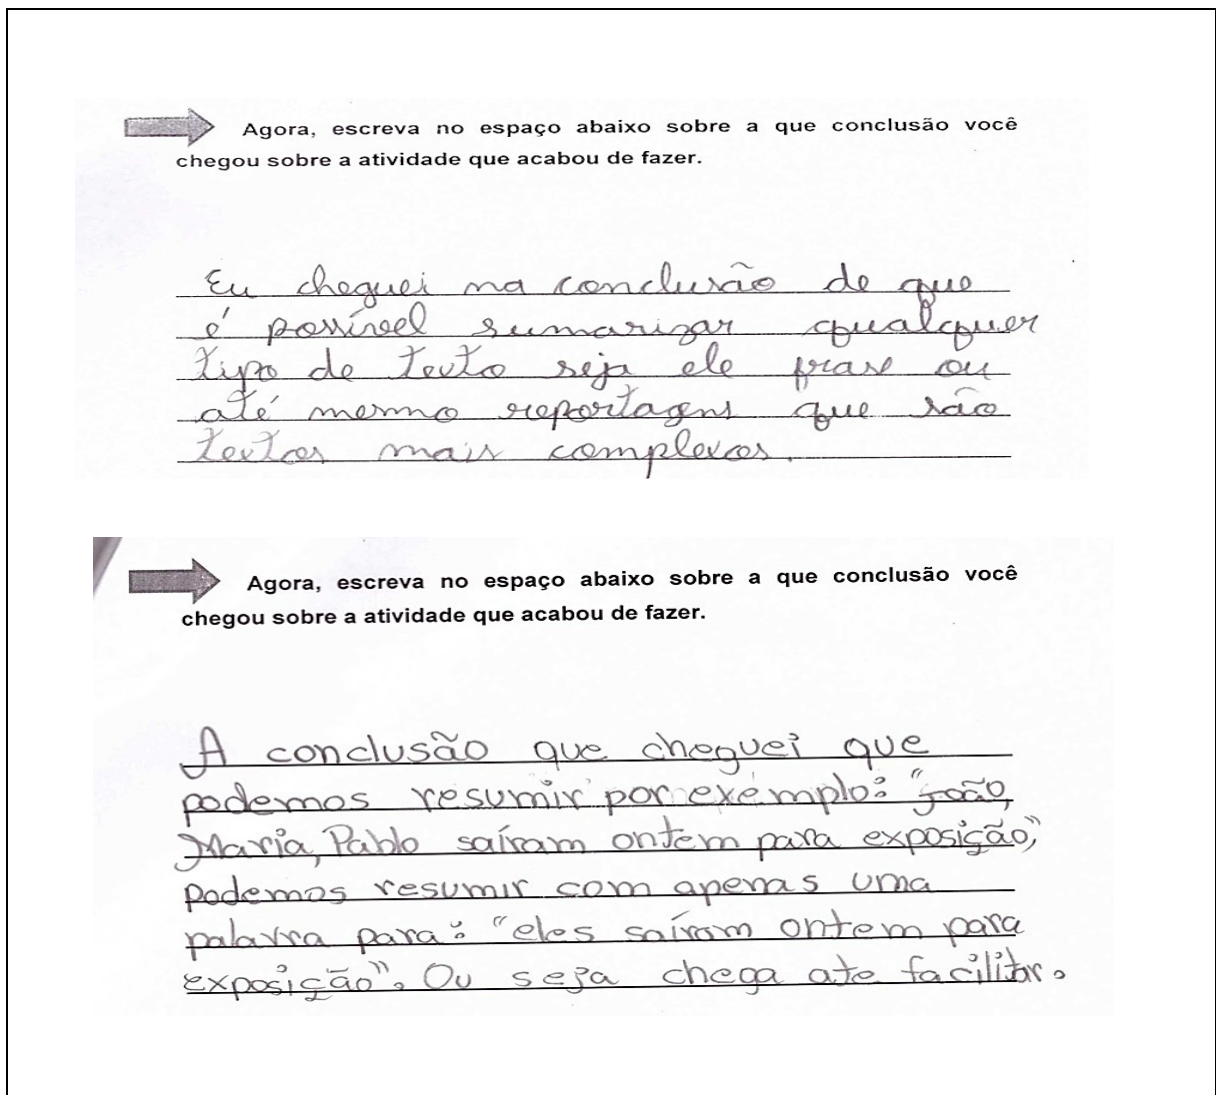 Agora, escreva no espaço abaixo sobre a que conclusão você
chegou sobre a atividade que acabou de fazer.
Eu cheguei na conclusão de que
é possível sumarizar qualquer
tipo de texto seja ele frase ou
até mesmo reportagens que são
textos mais complexos.
Agora, escreva no espaço abaixo sobre a que conclusão você
chegou sobre a atividade que acabou de fazer.
A conclusão que cheguei que
podemos resumir por exemplo: "João,
Maria, Pablo saíram ontem para exposição",
podemos resumir com apenas uma
palavra para: "eles saíram ontem para
exposição". Ou seja chega ate facilitar.